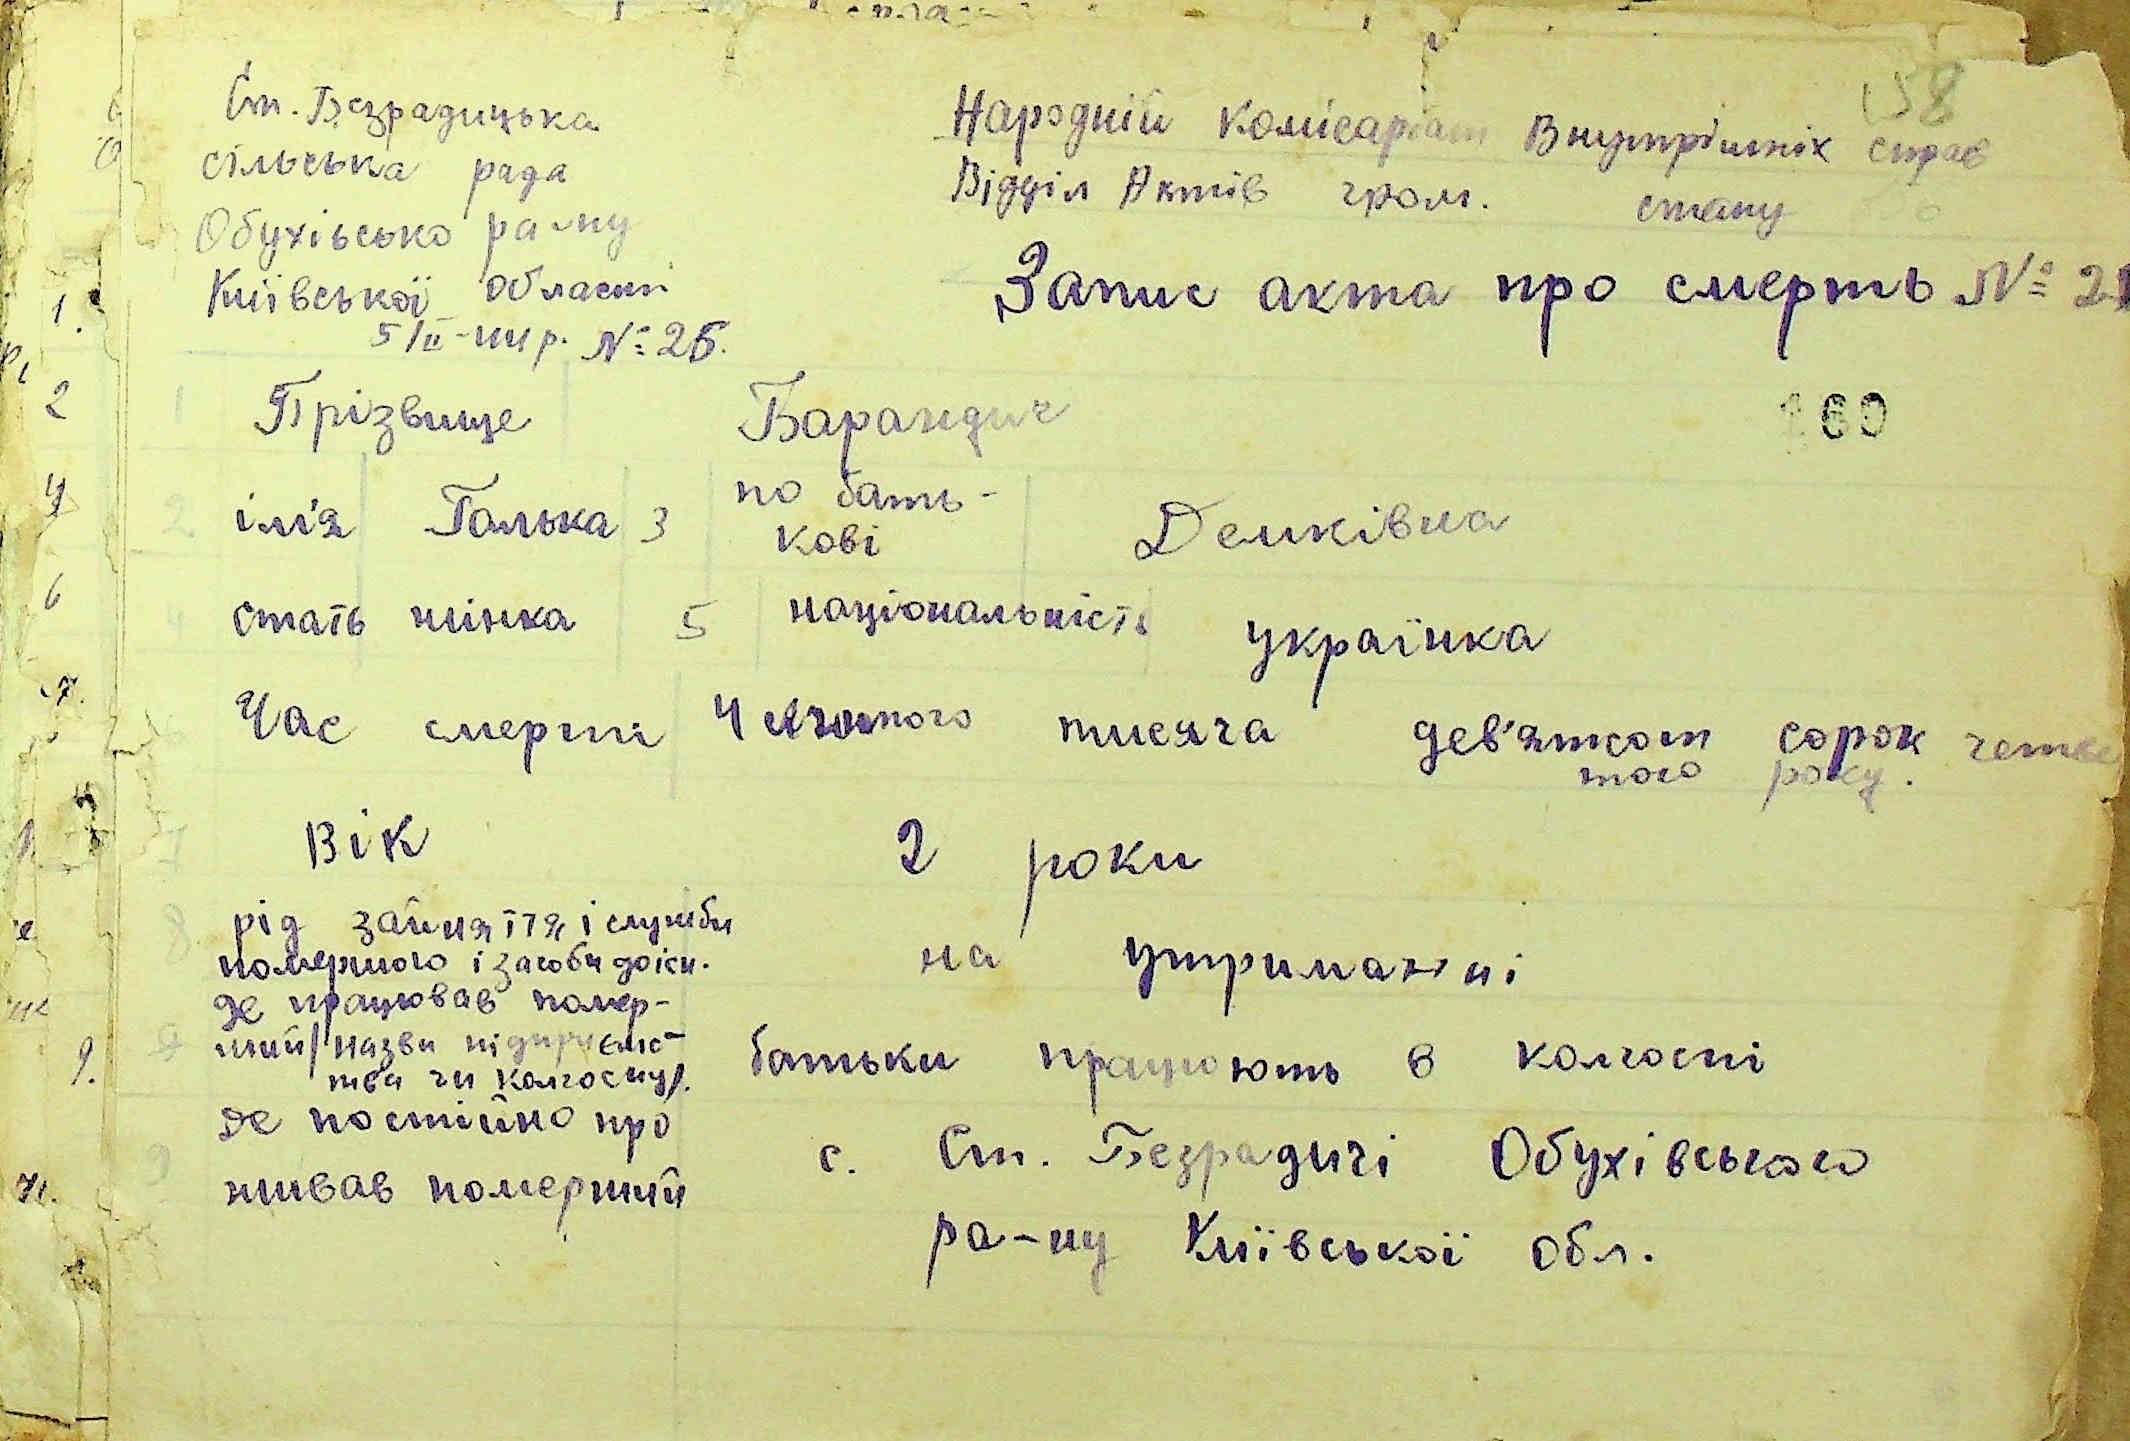 Ст. Безрадицька
сільська рада
Обухівсько ра-ну
Київської області
5/II - р. № 26.
Народній Комісаріат Внутрішніх справ
Відділ Актів гром. стану
Запис акта про смерть № 21
138
160
1 Прізвище Барандич
2 ім'я Галька 3 по бать-
кові Демківна
4 стать жінка 5 національність українка
Час смерті 4 лютого тисяча дев'ятсот сорок четве
того року.
7 Вік 2 роки
8 рід зайняття і служби
помершого і засоби доісн. на утриманні
де працював помер-
ший/назви підприємс-
тва чи колгоспу/. батьки працюють в колгоспі
9 де постійно про
живав померший с. Ст. Безрадичі Обухівського
ра-ну Київської обл.